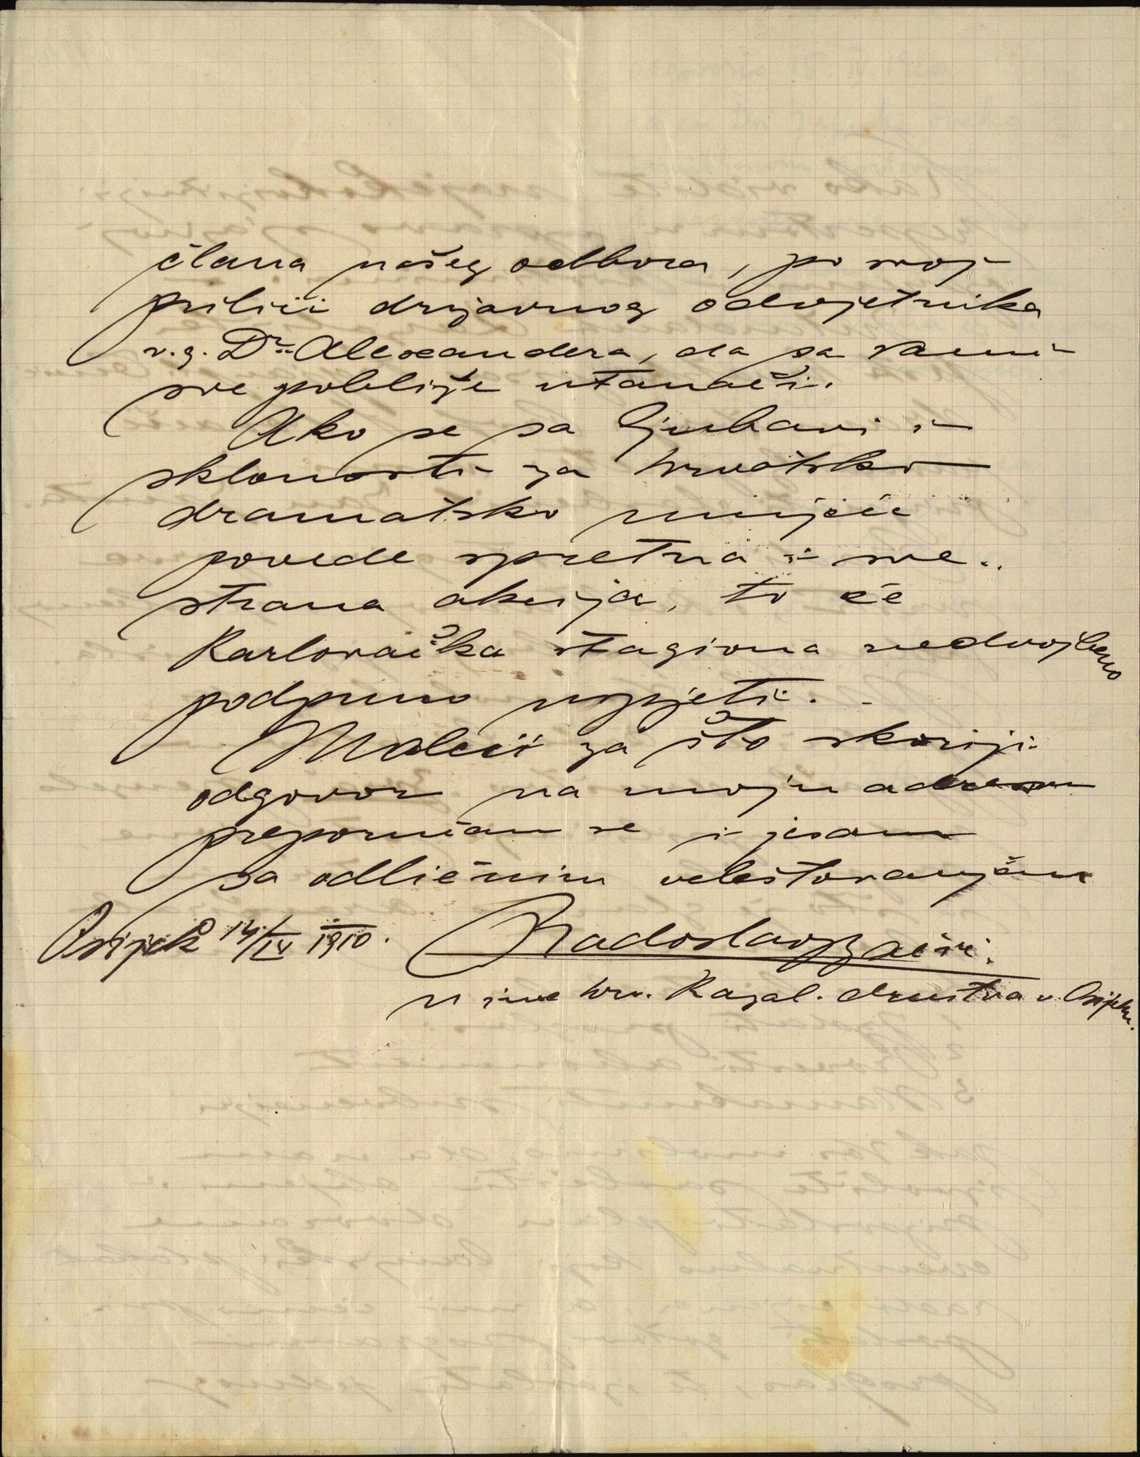 člana našeg odbora, po svoj
prilici državnog odvjetnika
v. g. Dr. Alexandera, da sa Vami
sve pobliže utanači.
Ako se sa ljubavi i
sklonosti za hrvatsko
dramatsko umijeće
povede spretna i sve-
strana akcija, to će
Karlovačka stagiona nedvojbeno
podpuno uspjeti.
Moleći za što skoriji
odgovor na moju adresu
preporučam se i jesam
sa odličnim veleštovanjem
Osijek 14/IV 1910. Radoslav
u ime hrv. Kazal. društva u Osijeku.